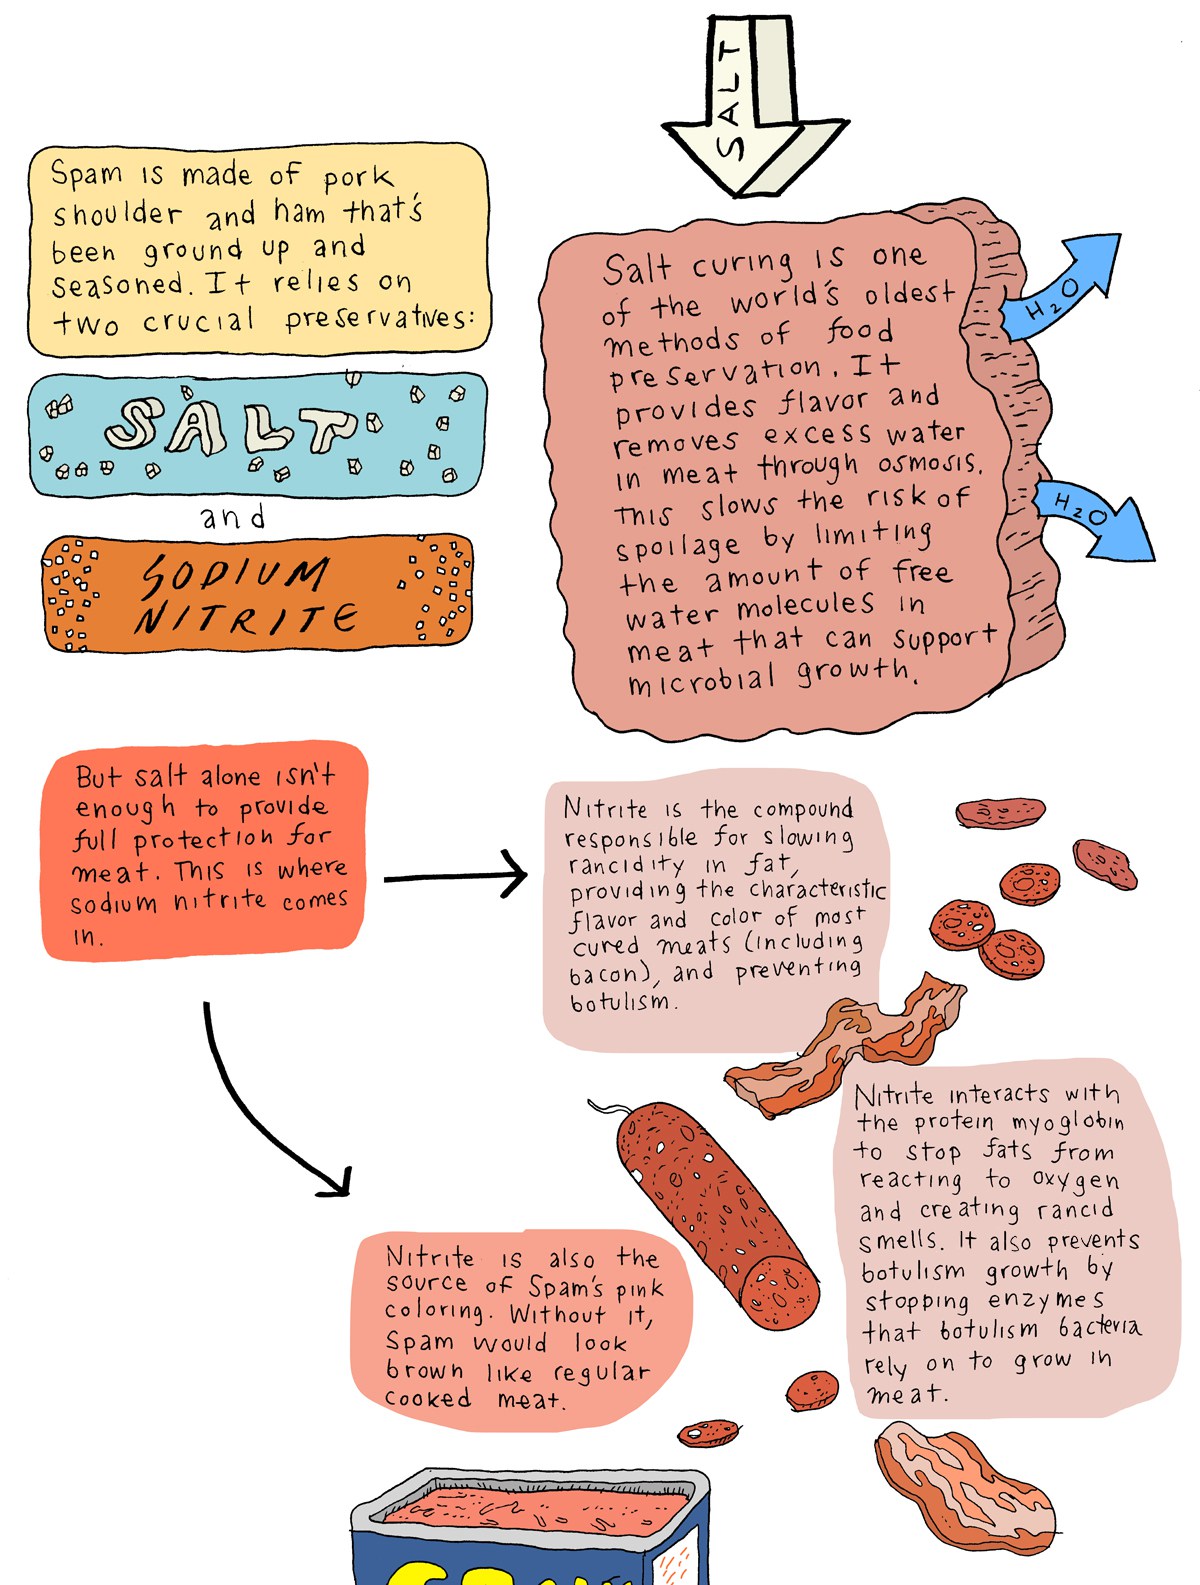 SALT
Spam is made of pork
shoulder and ham that's
been ground up and
seasoned. It relies on
two crucial preservatives:
SALT
and
SODIUM
NITRITE
Salt curing is one
of the world's oldest
methods of food
preservation. It
provides flavor and
removes excess water
in meat through osmosis.
This slows the risk of
spoilage by limiting
the amount of free
water molecules in
meat that can support
microbial growth.
H2O
H2O
But salt alone isn't
enough to provide
full protection for
meat. This is where
sodium nitrite comes
in.
Nitrite is the compound
responsible for slowing
rancidity in fat,
providing the characteristic
flavor and color of most
cured meats (including
bacon), and preventing
botulism.
Nitrite interacts with
the protein myoglobin
to stop fats from
reacting to oxygen
and creating rancid
smells. It also prevents
botulism growth by
stopping enzymes
that botulism bacteria
rely on to grow in
meat.
Nitrite is also the
source of Spam's pink
coloring. Without it,
Spam would look
brown like regular
cooked meat.